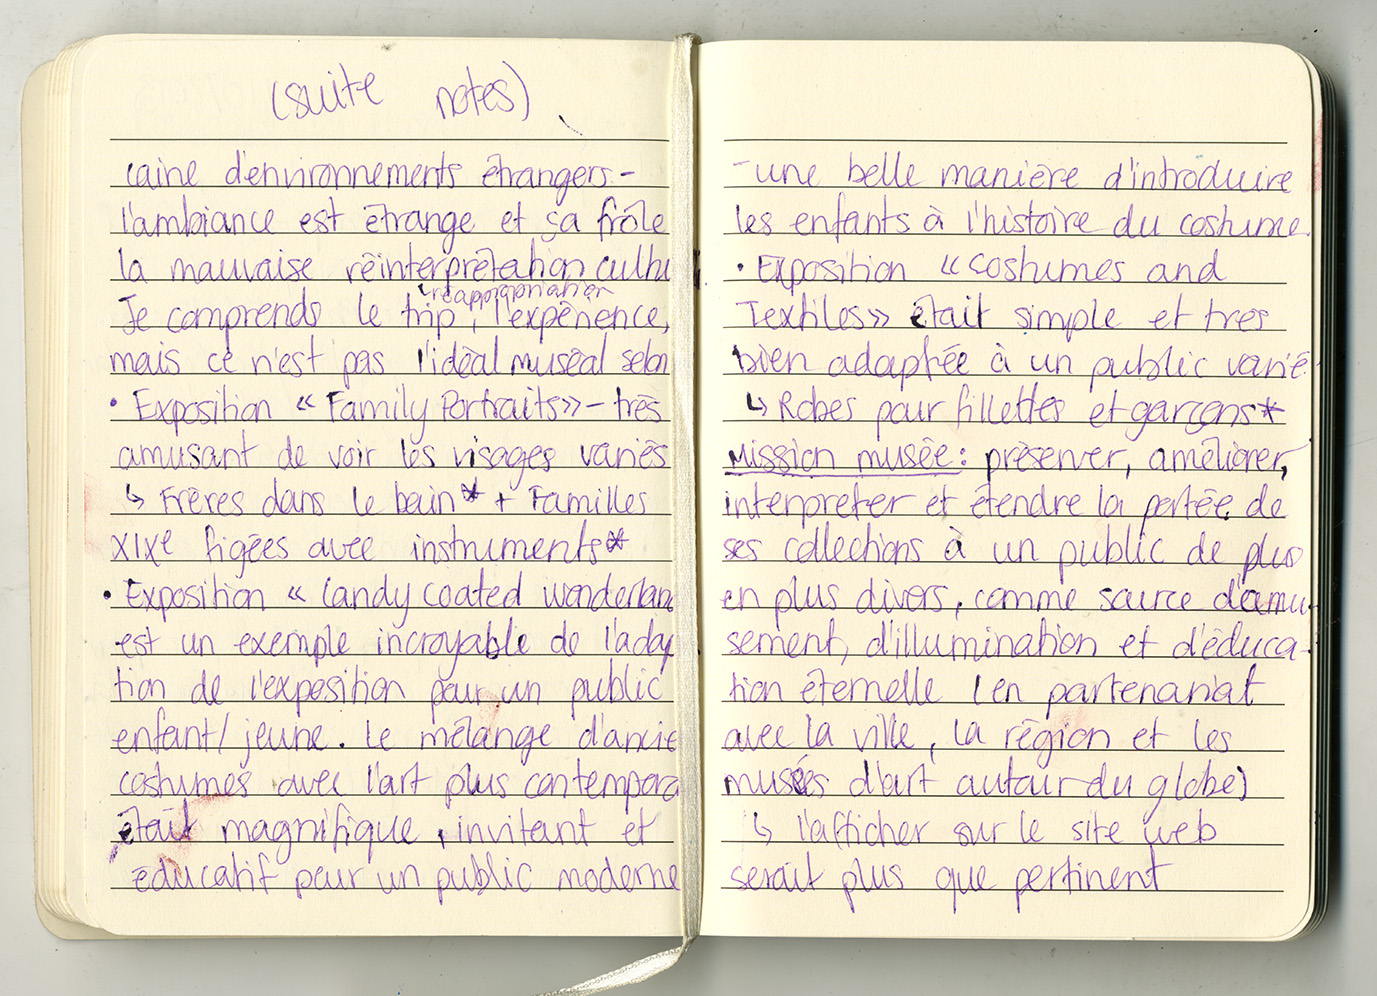 (suite notes)
caine d'environnements étrangers -
l'ambiance est étrange et ça frôle
la mauvaise réinterprétation cultu
réappropriation
Je comprends le trip, l'expérience,
mais ce n'est pas l'idéal muséal selon
• Exposition « Family Portraits » - très
amusant de voir les visages variés
↳ Frères dans le bain* + Familles
XIXe figées avec instruments*
• Exposition « Candy coated wonderlan
est un exemple incroyable de l'adap
tion de l'exposition pour un public
enfant/jeune. Le mélange d'ancie
costumes avec l'art plus contempora
était magnifique, invitant et
éducatif pour un public moderne
- une belle manière d'introduire
les enfants à l'histoire du costume.
• Exposition « Costumes and
Textiles » était simple et très
bien adaptée à un public varié.
↳ Robes pour fillettes et garçons*
Mission musée: préserver, améliorer,
interpréter et étendre la portée de
ses collections à un public de plus
en plus divers, comme source d'amu-
sement, d'illumination et d'éduca-
tion éternelle (en partenariat
avec la ville, la région et les
musées d'art autour du globe)
↳ l'afficher sur le site web
serait plus que pertinent